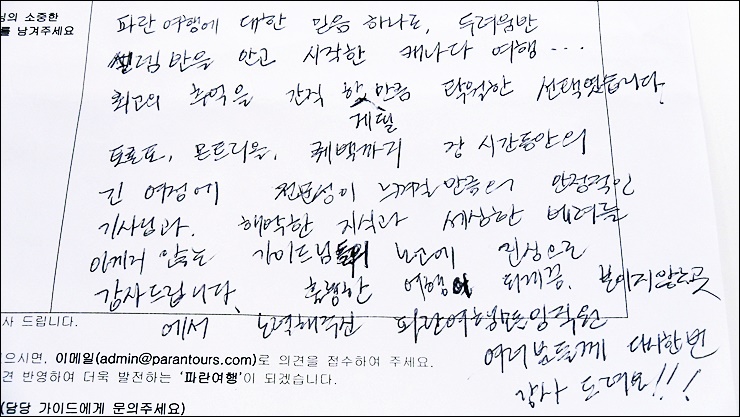 님의 소중한
를 남겨주세요
파란 여행에 대한 믿음 하나로, 두려움반
설레임 반을 안고 시작한 캐나다 여행...
최고의 추억을 간직 할 만큼 탁월한 선택였습니다.
게 될
토론토, 몬트리올, 퀘벡까지 장 시간동안의
긴 여정에 전문성이 느껴질 만큼의 안정적인
기사님과. 해박한 지식과 세심한 배려를
아끼지 않는 가이드님들의 노고에 진심으로
감사드립니다. 훌륭한 여행이 되게끔. 보이지않는곳
에서 노력해주신 파란여행 모든 임직원
여러분들께 다시한번
감사 드려요!!!
사 드립니다.
으시면, 이메일(admin@parantours.com)로 의견을 접수하여 주세요.
견 반영하여 더욱 발전하는 '파란여행'이 되겠습니다.
(담당 가이드에게 문의주세요)